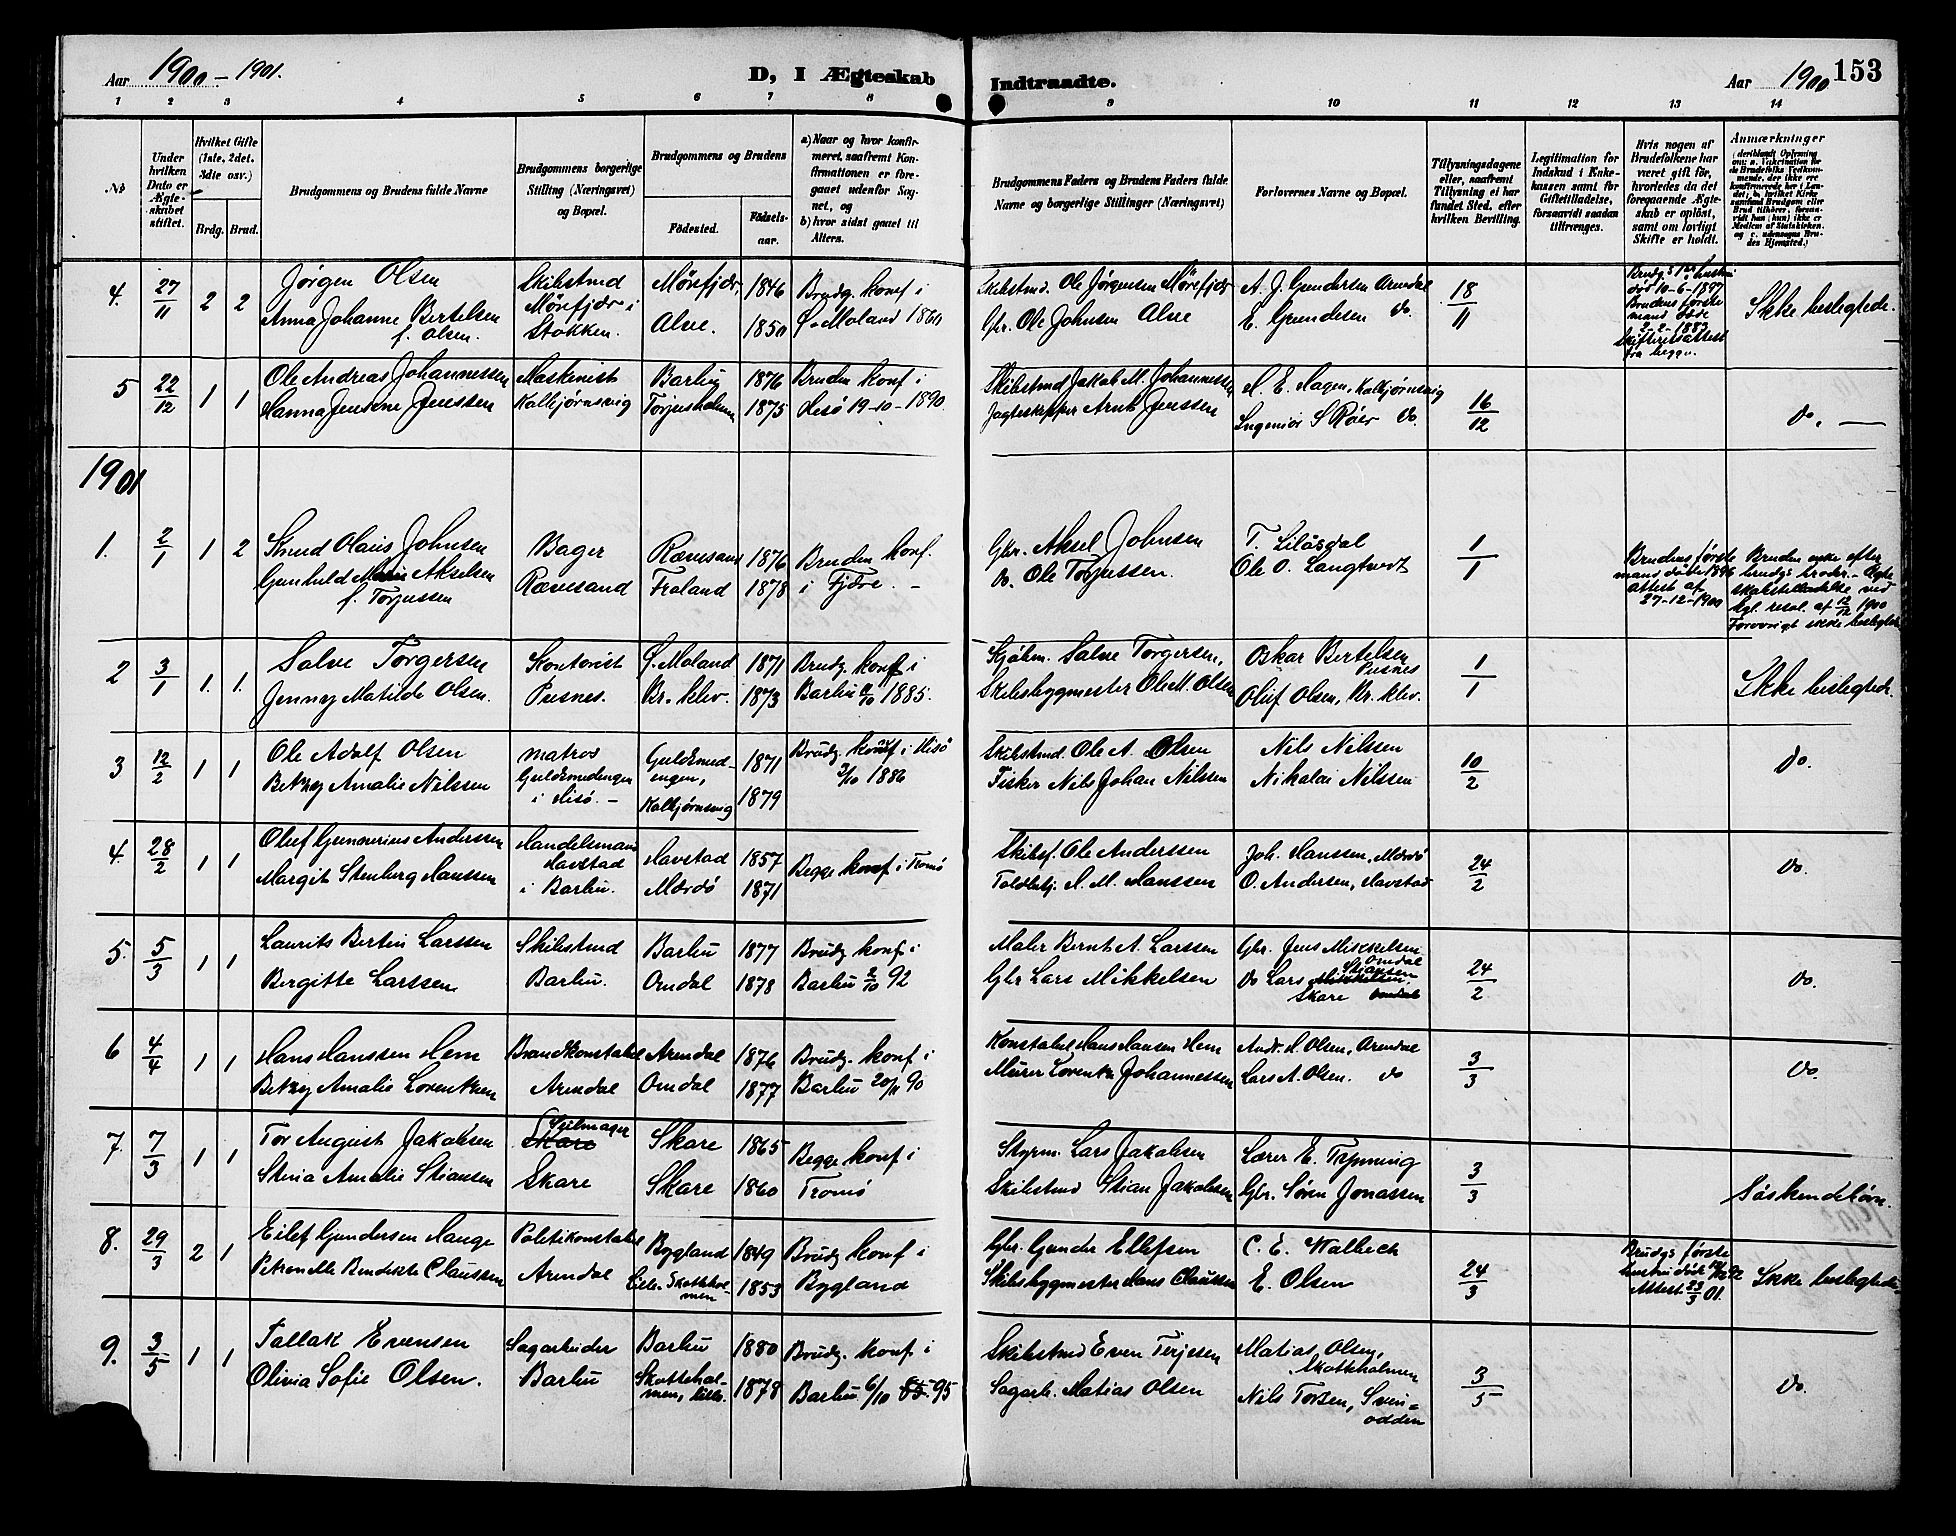 Aar 1900 - 1901.
D, I Ægteskab
Indtraadte.
Aar 1900
153
1 2 3 4 5 6 7 8 9 10 11 12 13 14
No
Under hvilken Dato er Ægteskabet stiftet.
Hvilket Gifte (1ste, 2det, 3die osv.)
Brdg. Brud.
Brudgommens og Brudens fulde Navne
Brudgommens borgerlige Stilling (Næringsvei) og Bopæl.
Brudgommens og Brudens
Fødested.
Fødselsaar.
a) Naar og hvor konfirmeret, saafremt Konfirmationen er foregaaet udenfor Sognet, og
b) hvor sidst gaaet til Alters.
Brudgommens Faders og Brudens Faders fulde Navne og borgerlige Stillinger (Næringsvei)
Forlovernes Navne og Bopæl.
Tillysningsdagene eller, saafremt Tillysning ei har fundet Sted, efter hvilken Bevilling.
Legitimation for Indskud i Enkekassen samt for Giftetilladelse, forsaavidt saadan tiltrænges.
Hvis nogen af Brudefolkene har været gift før, hvorledes da det foregaaende Ægteskab er opløst, samt om lovligt Skifte er holdt.
Anmærkninger
4. 27/11 2 2 Jørgen Olsen Skibstmd Mørefjær, 1846 Brudg. konf i
Anna Johanne Bertelsen Mørefjær i Alve. 1850
f. Olsen. Stokken.
Skibstmd. Ole Jørgensen Mørefjær A. J. Gundersen Arendal 18/11
Gbr. Ole Johnsen Alve E. Gundersen do.
død 10-6-1897
Brudens første
mand døde
2-2-1883
Skifteretsattest
Ikke beslegtede.
5 22/12 1 1 Ole Andreas Johannessen Maskinist Barbu 1876 Bruden konf i
Hanna Jensine Jenssen Kalbjørnsvig Torjusholmen 1875 Hisö 19-10-1890.
Skibstmd Jakob M. Johannessen H. E. Hagen, Kalbjørnsvig 16/12
Jagteskipper Arnt Jenssen Ingeniör S Röer do. do.
1901
1. 2/1 1 2 Knud Olaus Johnsen Bager Rævesand 1876 Bruden konf.
Gunhild Marie Akselsen Rævesand Froland 1878 i Fjære. -
f. Torjussen
Gbr. Aksel Johnsen 1/1
do. Ole Torjussen. Ole O. Langtvedt
Brudens første
mand døde 1896
Attest af
27-12-1900
Bruden enke efter
brudgs broder. - Ægte
skabstilladelse ved
kgl. resol. af 12/12 1900
Forøvrigt ikke beslegtede
2 3/1 1. 1. Salve Torgersen Kontorist Ö. Moland 1871 Brudg. konf i
Jenny Matilde Olsen. Pusnes. Kr. klev. 1873 Barbu 1885.
Kjöbm. Salve Torgersen, Oskar Bertelsen Pusnes 1/1
Skibsbygmester Ole M. Olsen Oluf Olsen, Kr. klev. Ikke beslegtede.
3 12/2 1 1 Ole Adolf Olsen Matros Guldsmedengen, 1871 Brudg. konf i Hisö
Betzey Amalie Nilssen Guldsmedengen i Hisö. - Kalbjørnsvig 1879 3/10 1886
Skibstmd. Ole A. Olsen Nils Nilssen 10/2
Fisker Nils Johan Nilssen Nikolai Nilssen do.
4. 28/2 1 1 Oluf Gunnerius Anderssen Handelsmand Havstad 1857 Begge konf i Tromö
Margit Stenberg Hanssen Havstad i Barbu. Mærdö 1871
Skibsf. Ole Anderssen Joh. Hanssen, Mærdö 24/2
Toldbetj. H. M. Hanssen O. Andersen, Havstad do.
5. 5/3 1 1 Laurits Bertin Larssen Skibstmd Barbu 1877 Brudg konf i
Bergitte Larssen Barbu. Omdal 1878 Barbu 2/10 92
Maler Bernt A. Larssen Gbr. Jens Mikkelsen Omdal 24/2
Gbr Lars Mikkelsen do Lars Mikkelsen Stiansen Skare Omdal do.
6 4/4 1 1 Hans Hanssen Hem Brandkonstabel Arendal 1876 Brudg. konf i
Betzey Amalie Lorentzen Arendal Omdal 1877 Barbu 90
Konstabel Hans Hansen Hem Andr. H. Olsen, Arendal 3/3
Murer Lorentz Johannessen Lars A. Olsen. do do.
7. 7/3 1 1 Tor August Jakobsen Skare Seilmager Skare 1865 Begge konf i
Stina Amalie Stiansen Skare Skare 1860 Tromö
Styrm. Lars Jakobsen Lærer E. Tønning 3/3
Skibstmd Stian Jakobsen Gbr. Søren Jonassen Söskendebörn.
8. 29/3 2 1 Eilef Gundersen Hauge Politikonstabel Bygland 1849 Brudg konf i
Petronelle Bendikte Claussen Arendal Lille-Skottholmen 1853 Bygland
Gbr. Gunder Ellefsen C. E. Walbech 24/3
Skibsbygmester Hans Claussen E. Olsen
Brudgs første
hustru död 92
Attest 23/3 01.
Ikke beslegtede.
9. 3/5 1 1 Tallak Evensen Sagarbeider Barbu 1880 Brudg. konf i
Olivia Sofie Olsen. Barbu Skotteholmen, Lille. 1878 Barbu 6/10 85 95
Skibstmd Even Terjesen Matias Olsen, Skottholmen 3/5
Sagarb. Matias Olsen Nils Torsen, Svinodden do.